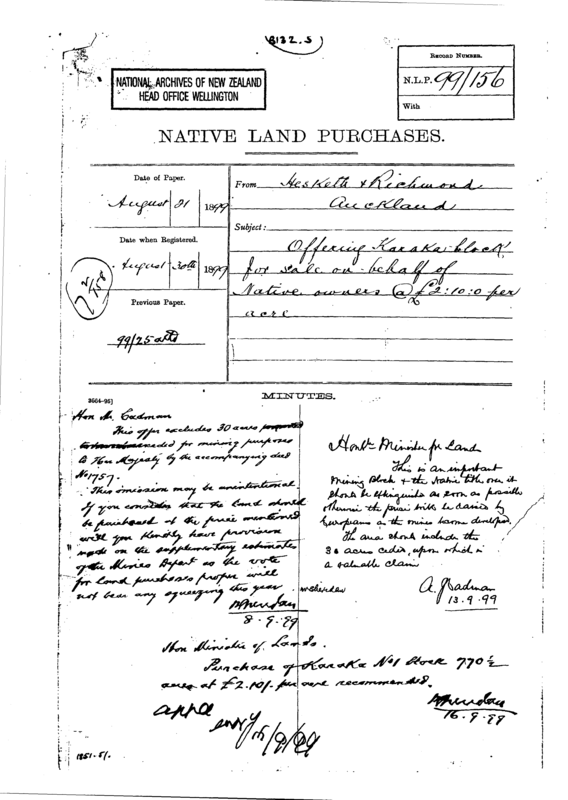 8132.5
NATIONAL ARCHIVES OF NEW ZEALAND
HEAD OFFICE WELLINGTON
RECORD NUMBER.
N.L.P. 99/156
With
NATIVE LAND PURCHASES.
Date of Paper.
August 21 1899
Date when Registered.
August 30th 1899
Previous Paper.
99/25 attd
From Hesketh & Richmond
Auckland
Subject:
Offering Karaka block
for sale on behalf of
Native owners @ £2:10:0 per
acre
MINUTES.
3664-95]
Hon Mr. Cadman
This offer excludes 30 acres
ceded for mining purposes
to Her Majesty by the accompanying deed
No 1757.
This omission may be unintentional.
If you consider that the land should
be purchased at the price mentioned
will you kindly have provision
made on the supplementary estimates
of the Mines Depart as the vote
for land purchases proper will
not bear any squeezing this year.
P Sheridan
8.9.99
Honble Minister for Land
This is an important
Mining Block & the Native title over it
should be extinguished as soon as possible
otherwise the price will be raised by
Europeans as the mines become developed.
The area should include the
30 acres ceded, upon which is
a valuable claim
A. J. Cadman
13.9.99
Hon Minister of Lands.
Purchase of Karaka No 1 block 770½
acres at £2.10/- per acre recommended.
P Sheridan
16.9.99
appd
/9/99
1851.5/.